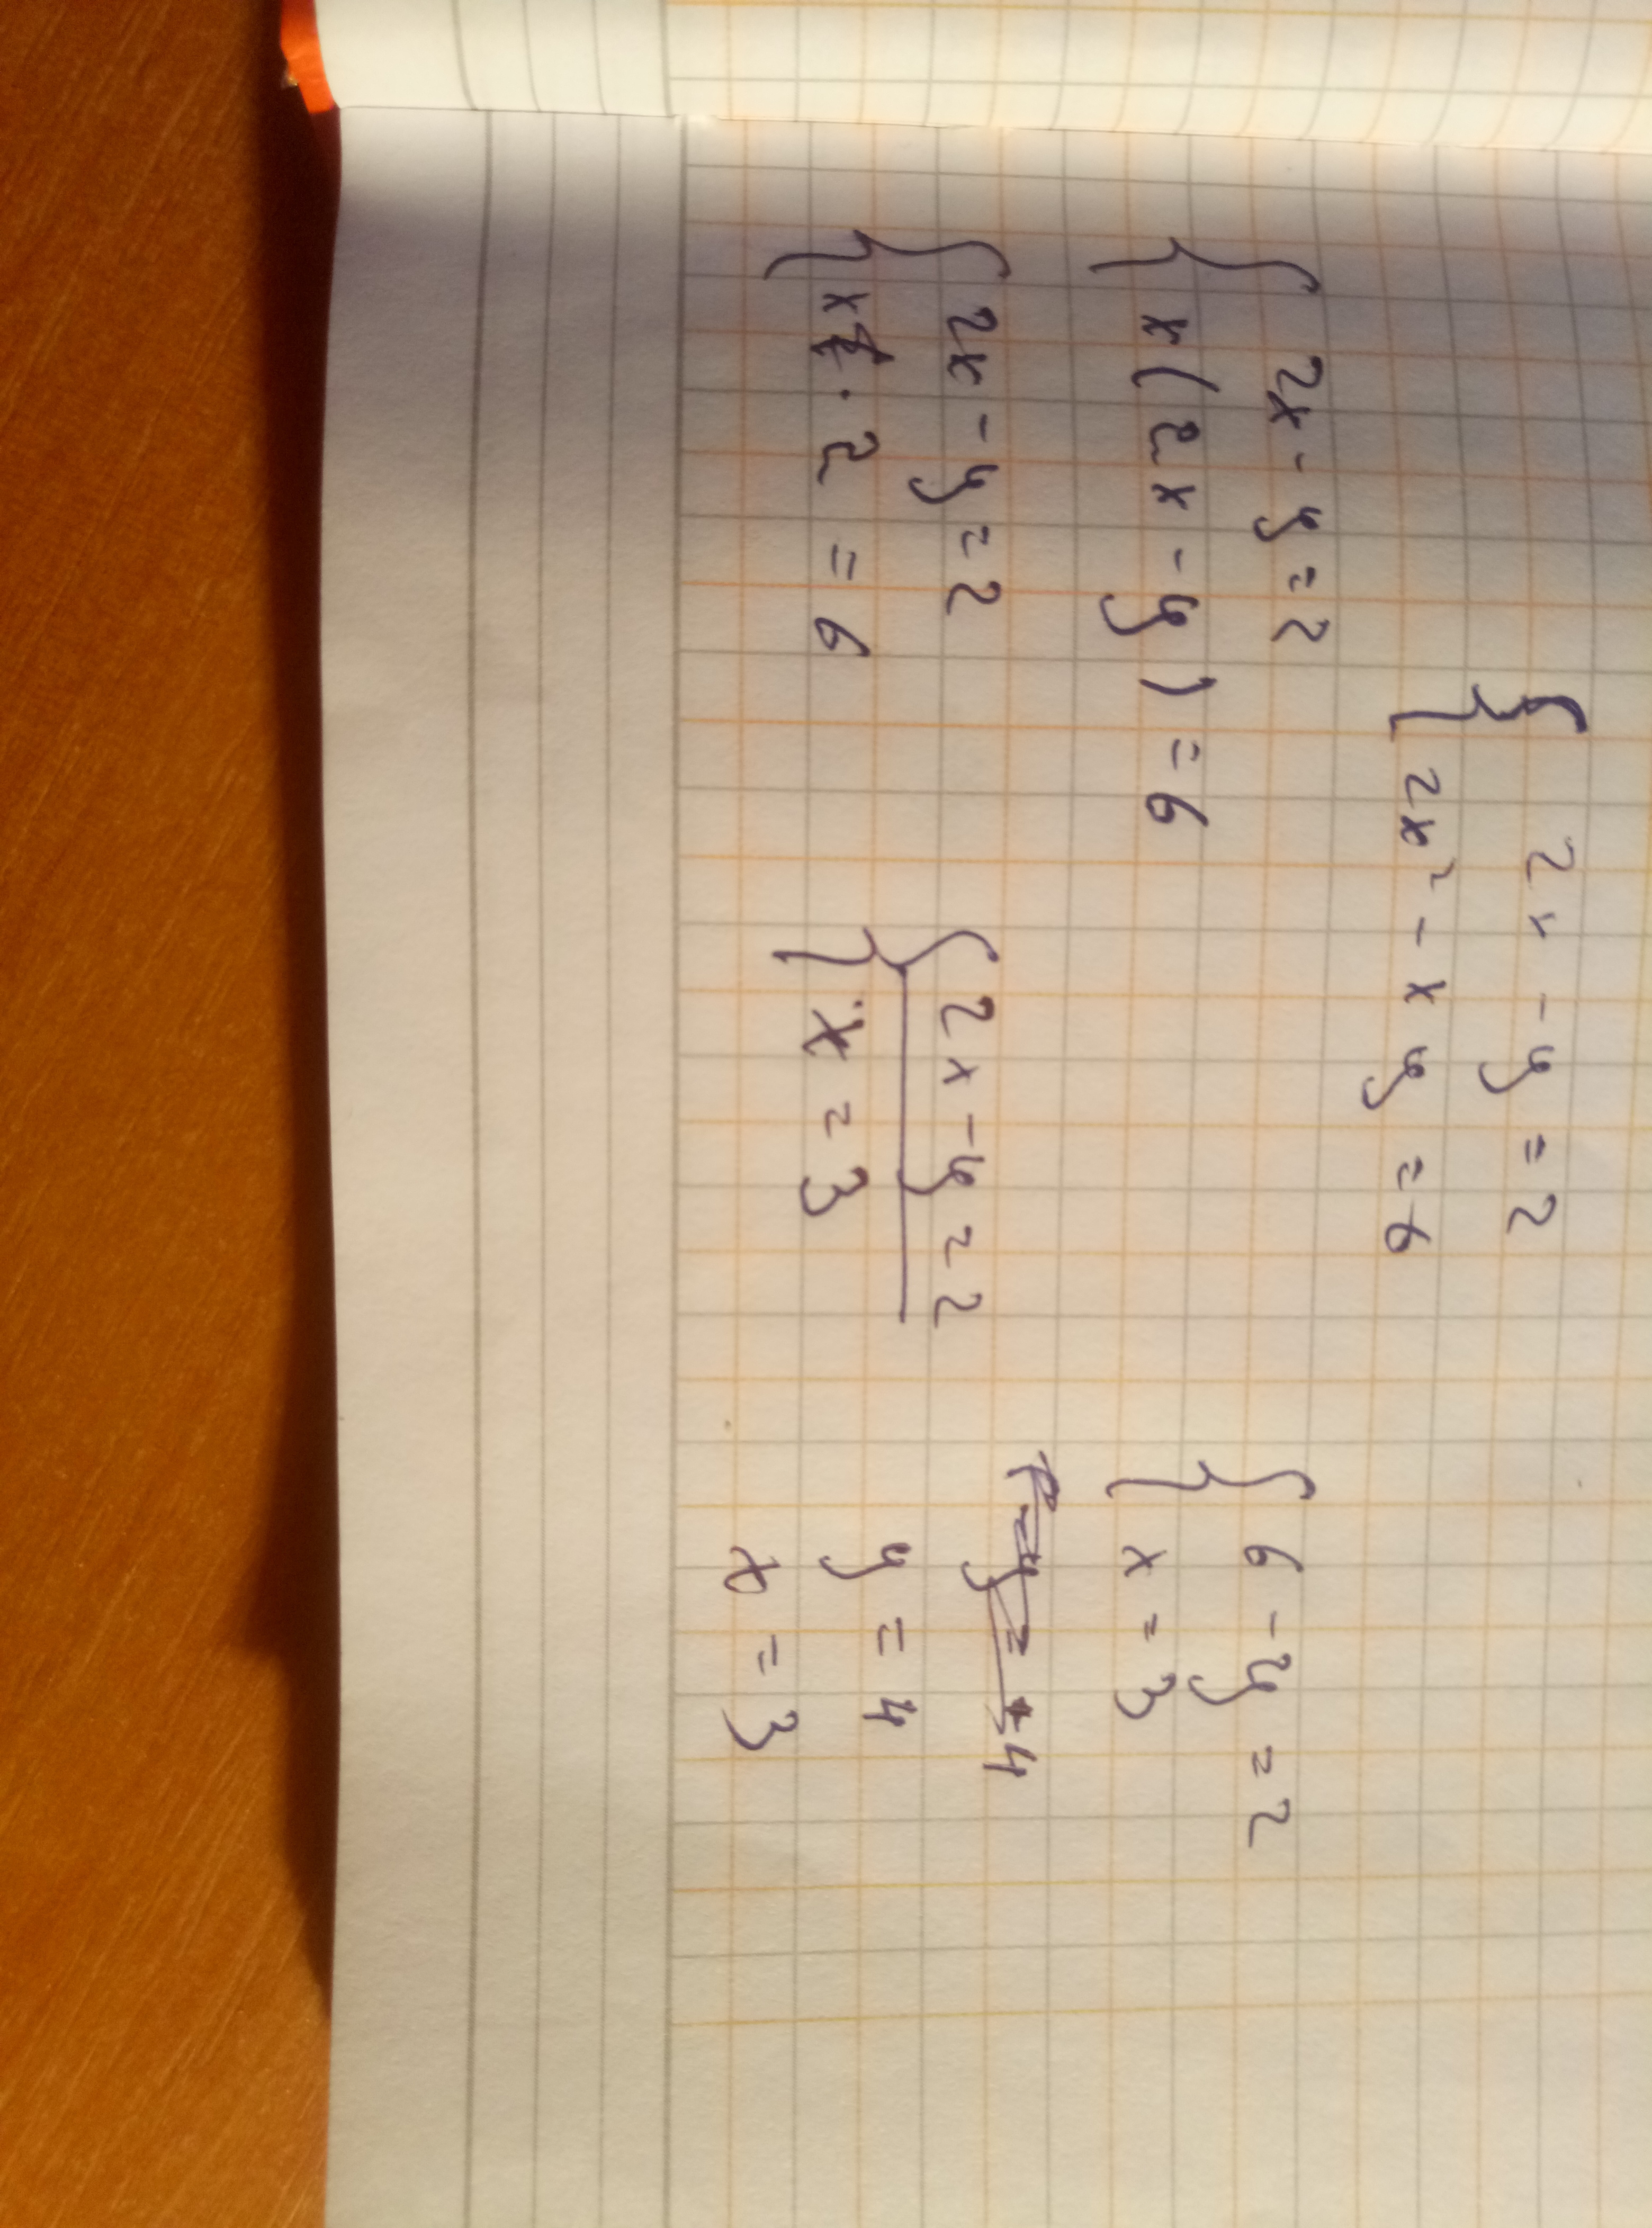 { 2x - y = 2
{ 2x² - xy = 6
{ 2x - y = 2
{ x(2x - y) = 6
{ 2x - y = 2
{ x · 2 = 6
{ 2x - y = 2
{ x = 3
{ 6 - y = 2
{ x = 3
y = 4
x = 3